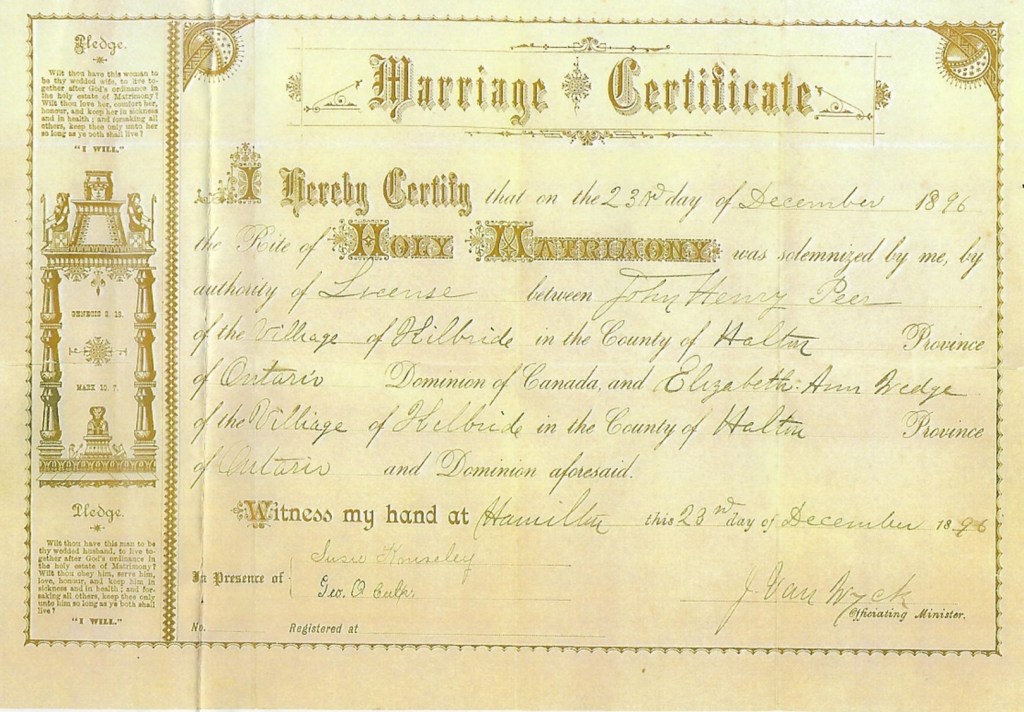 Pledge.
Wilt thou have this woman to
be thy wedded wife, to live to-
gether after God's ordinance in
the holy estate of Matrimony?
Wilt thou love her, comfort her,
honour, and keep her in sickness
and in health; and forsaking all
others, keep thee only unto her
so long as ye both shall live?
"I WILL."
GENESIS 2. 18.
MARK 10. 7.
Pledge.
Wilt thou have this man to be
thy wedded husband, to live to-
gether after God's ordinance in
the holy estate of Matrimony?
Wilt thou obey him, serve him,
love, honour, and keep him in
sickness and in health; and for-
saking all others, keep thee only
unto him so long as ye both shall
live?
"I WILL."
Marriage Certificate
I Hereby Certify that on the 23rd day of December 1896
the Rite of HOLY MATRIMONY was solemnized by me, by
authority of License between John Henry Peer
of the Village of Kilbride in the County of Halton Province
of Ontario Dominion of Canada, and Elizabeth Ann Wedge
of the Village of Kilbride in the County of Halton Province
of Ontario and Dominion aforesaid.
Witness my hand at Hamilton this 23rd day of December 1896
Susie
In Presence of
Geo. O
J. Van Wyck
Officiating Minister.
No. Registered at